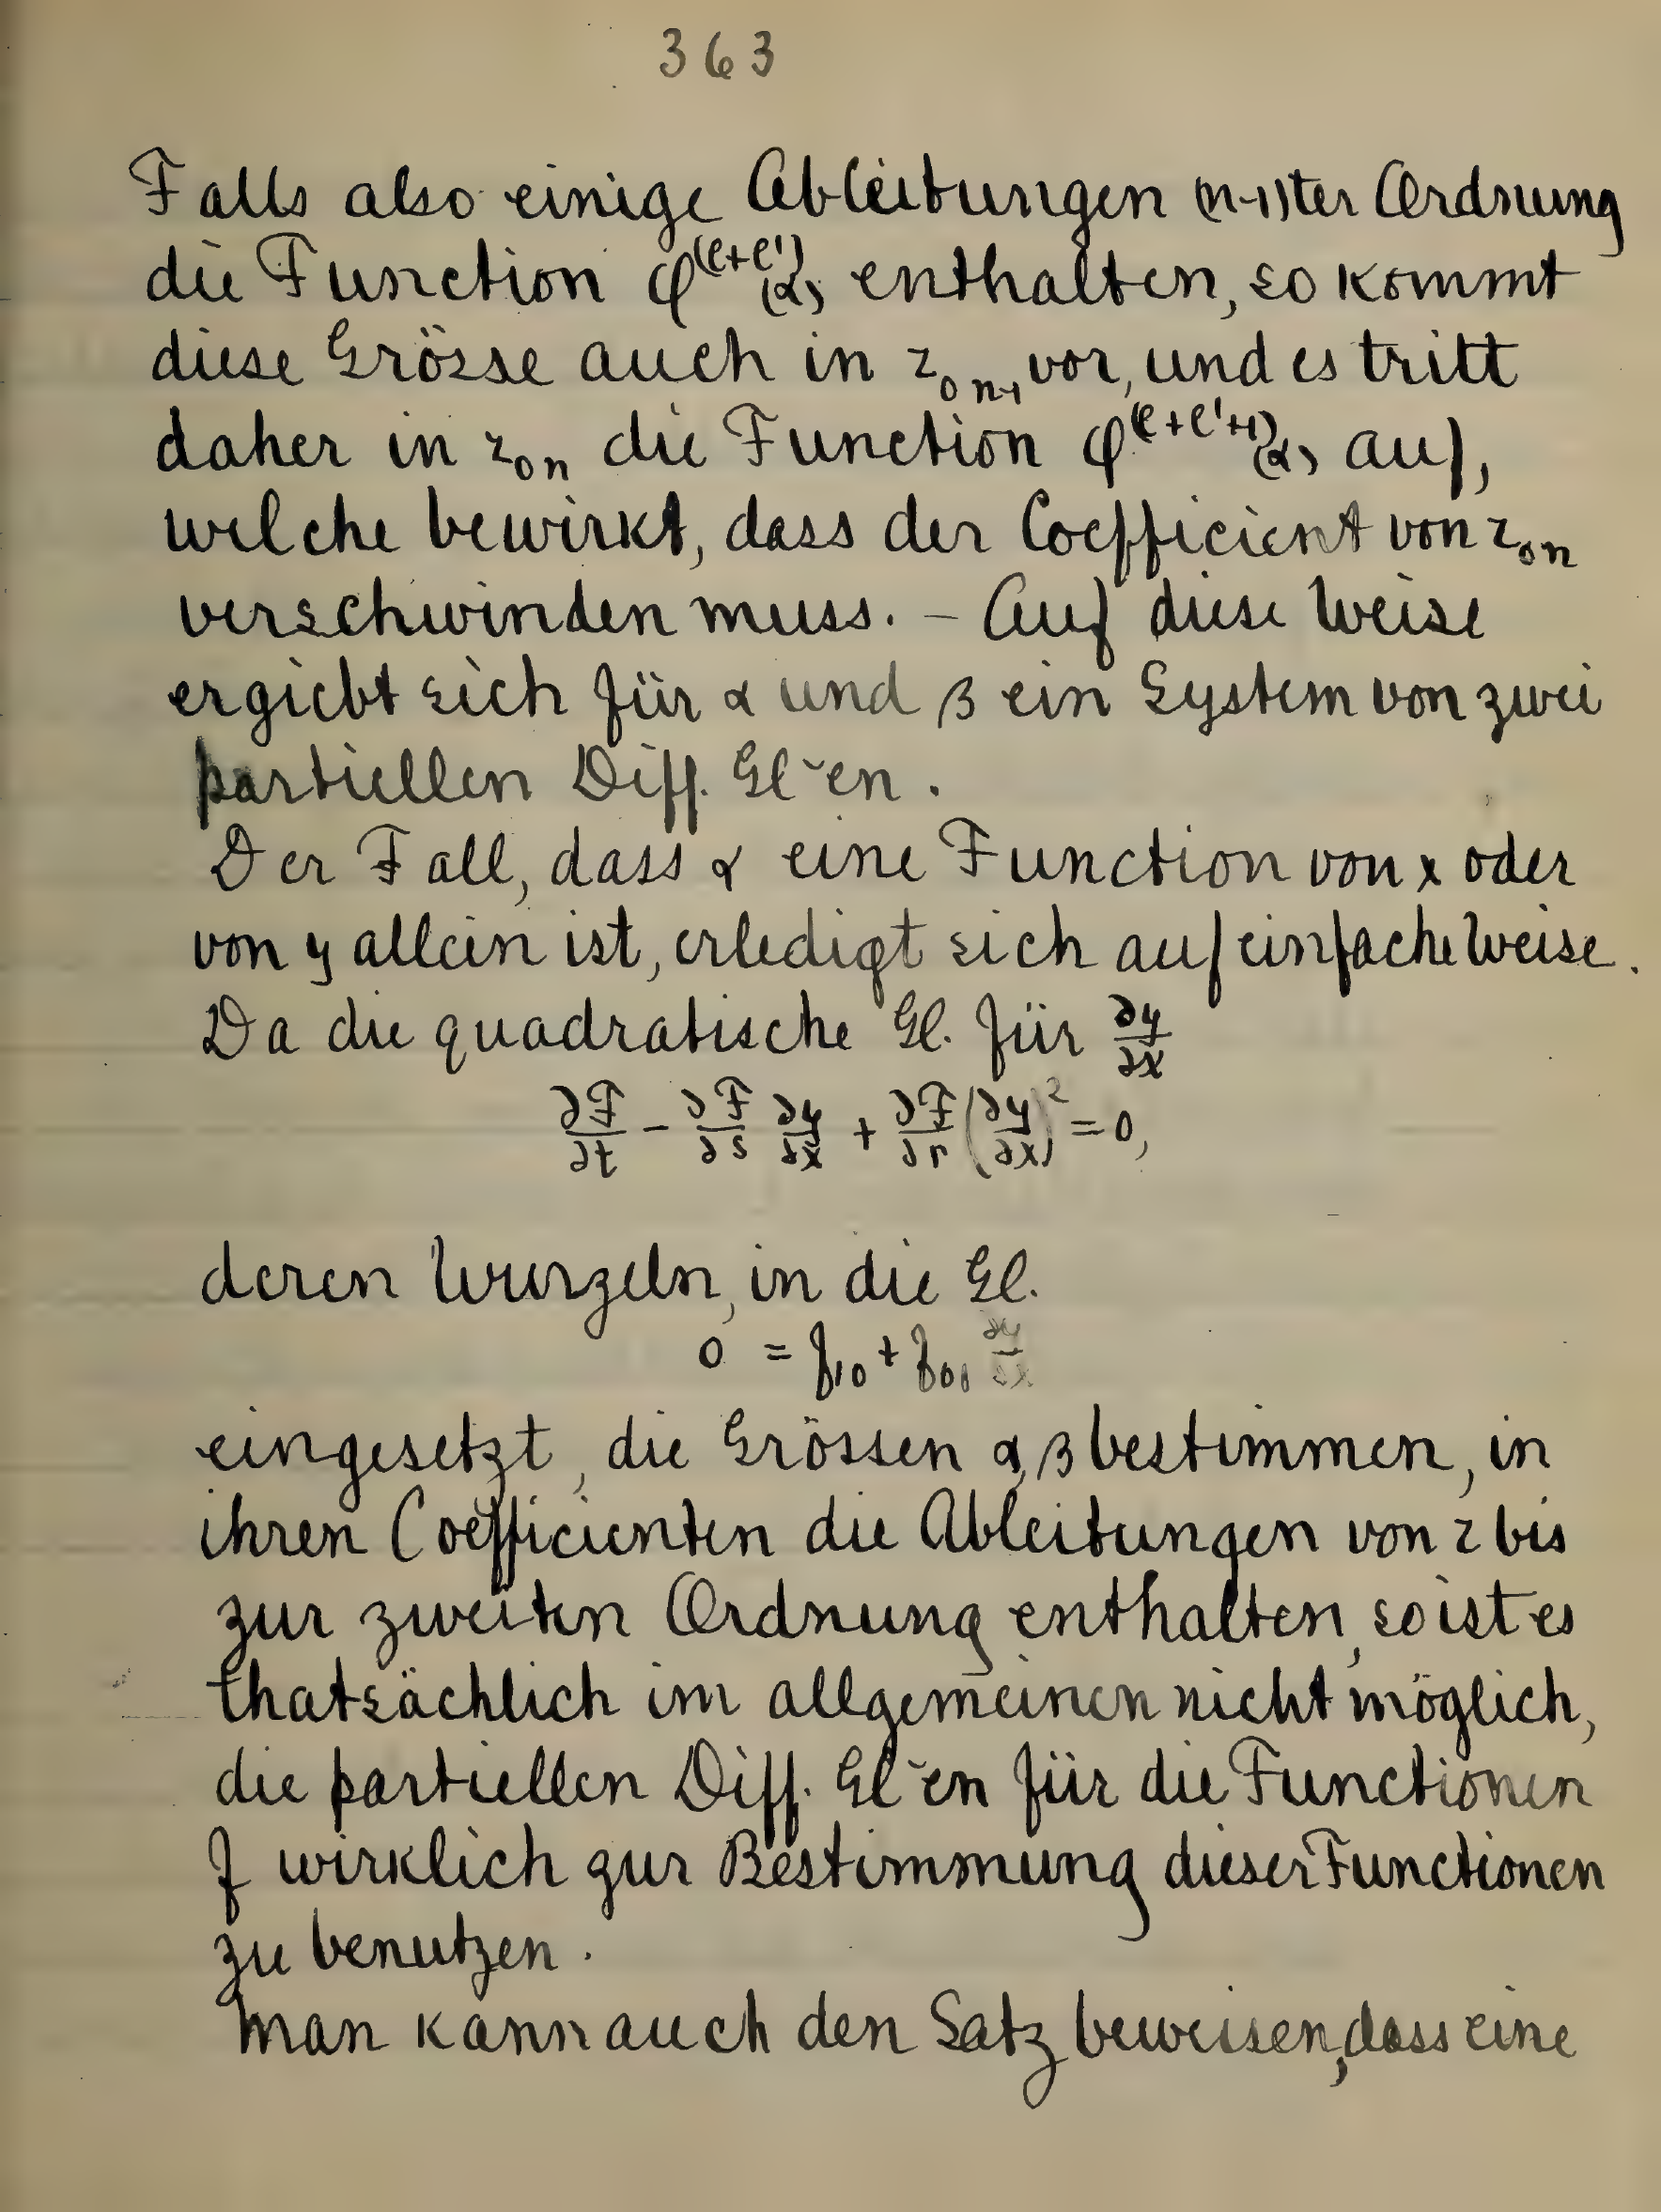 363
Falls also einige Ableitungen (n-1)ter Ordnung
die Function φ^(ℓ+ℓ')(α) enthalten, so kommt
diese Grösse auch in z_{0 n-1} vor, und es tritt
daher in z_{0n} die Function φ^(ℓ+ℓ'+1)(α) auf,
welche bewirkt, dass der Coefficient von z_{0n}
verschwinden muss. – Auf diese Weise
ergiebt sich für α und β ein System von zwei
partiellen Diff. Gl~en.
Der Fall, dass α eine Function von x oder
von y allein ist, erledigt sich auf einfache Weise.
Da die quadratische Gl. für ∂y/∂x
∂F/∂t - ∂F/∂s ∂y/∂x + ∂F/∂r (∂y/∂x)² = 0,
deren Wurzeln, in die Gl.
0 = f_{10} + f_{01} ∂y/∂x
eingesetzt, die Grössen α, β bestimmen, in
ihren Coefficienten die Ableitungen von z bis
zur zweiten Ordnung enthalten, so ist es
thatsächlich im allgemeinen nicht möglich,
die partiellen Diff. Gl~en für die Functionen
f wirklich zur Bestimmung dieser Functionen
zu benutzen.
Man kann auch den Satz beweisen, dass eine